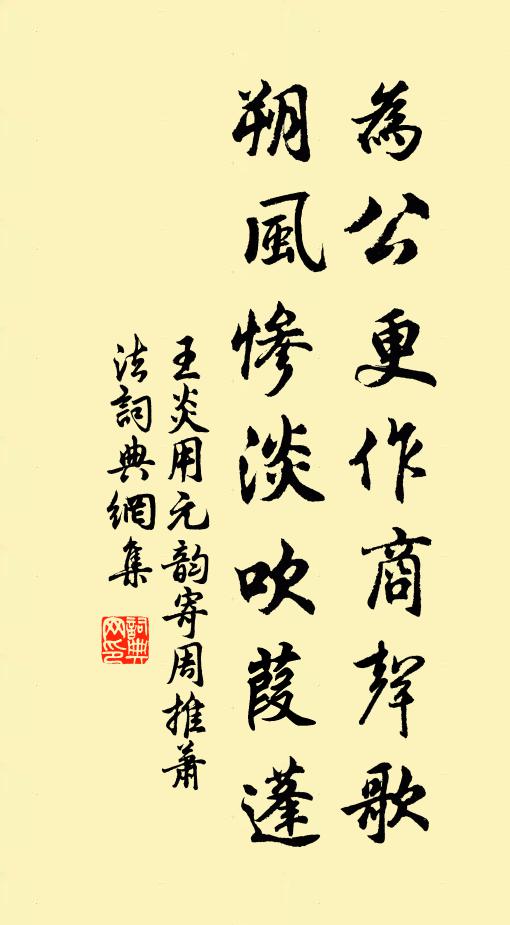 為公更作商聲歌
朔風慘淡吹葭蓬
王炎用元韵寄周推蕭
法詞典網集
詞典
网印